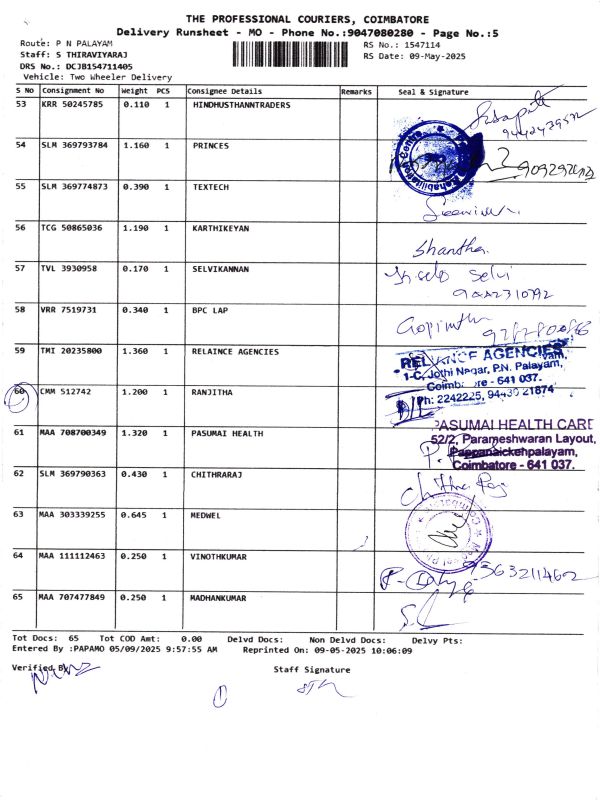 THE PROFESSIONAL COURIERS, COIMBATORE
Delivery Runsheet - MO - Phone No.:9047080280 - Page No.:5
Route: P N PALAYAM
Staff: S THIRAVIYARAJ
DRS No.: DCJB154711405
Vehicle: Two Wheeler Delivery
RS No.: 1547114
RS Date: 09-May-2025
S No Consignment No Weight PCS Consignee Details Remarks Seal & Signature
53 KRR 50245785 0.110 1 HINDHUSTHANNTRADERS
54 SLM 369793784 1.160 1 PRINCES
55 SLM 369774873 0.390 1 TEXTECH
56 TCG 50865036 1.190 1 KARTHIKEYAN
Shantha
57 TVL 3930958 0.170 1 SELVIKANNAN
Selvi
58 VRR 7519731 0.340 1 BPC LAP
Gopinath
59 TMI 20235800 1.360 1 RELAINCE AGENCIES
RELIANCE AGENCIES
1-C, Jothi Nagar, P.N. Palayam,
Coimbatore - 641 037.
Ph: 2242225, 94430 21874
60 CMM 512742 1.200 1 RANJITHA
61 MAA 708700349 1.320 1 PASUMAI HEALTH
PASUMAI HEALTH CARE
52/2, Parameshwaran Layout,
Pappanaickenpalayam,
Coimbatore - 641 037.
62 SLM 369790363 0.430 1 CHITHRARAJ
Chithra Raj
63 MAA 303339255 0.645 1 MEDWEL
64 MAA 111112463 0.250 1 VINOTHKUMAR
65 MAA 707477849 0.250 1 MADHANKUMAR
Tot Docs: 65 Tot COD Amt: 0.00 Delvd Docs: Non Delvd Docs: Delvy Pts:
Entered By :PAPAMO 05/09/2025 9:57:55 AM Reprinted On: 09-05-2025 10:06:09
Verified By
Staff Signature
1